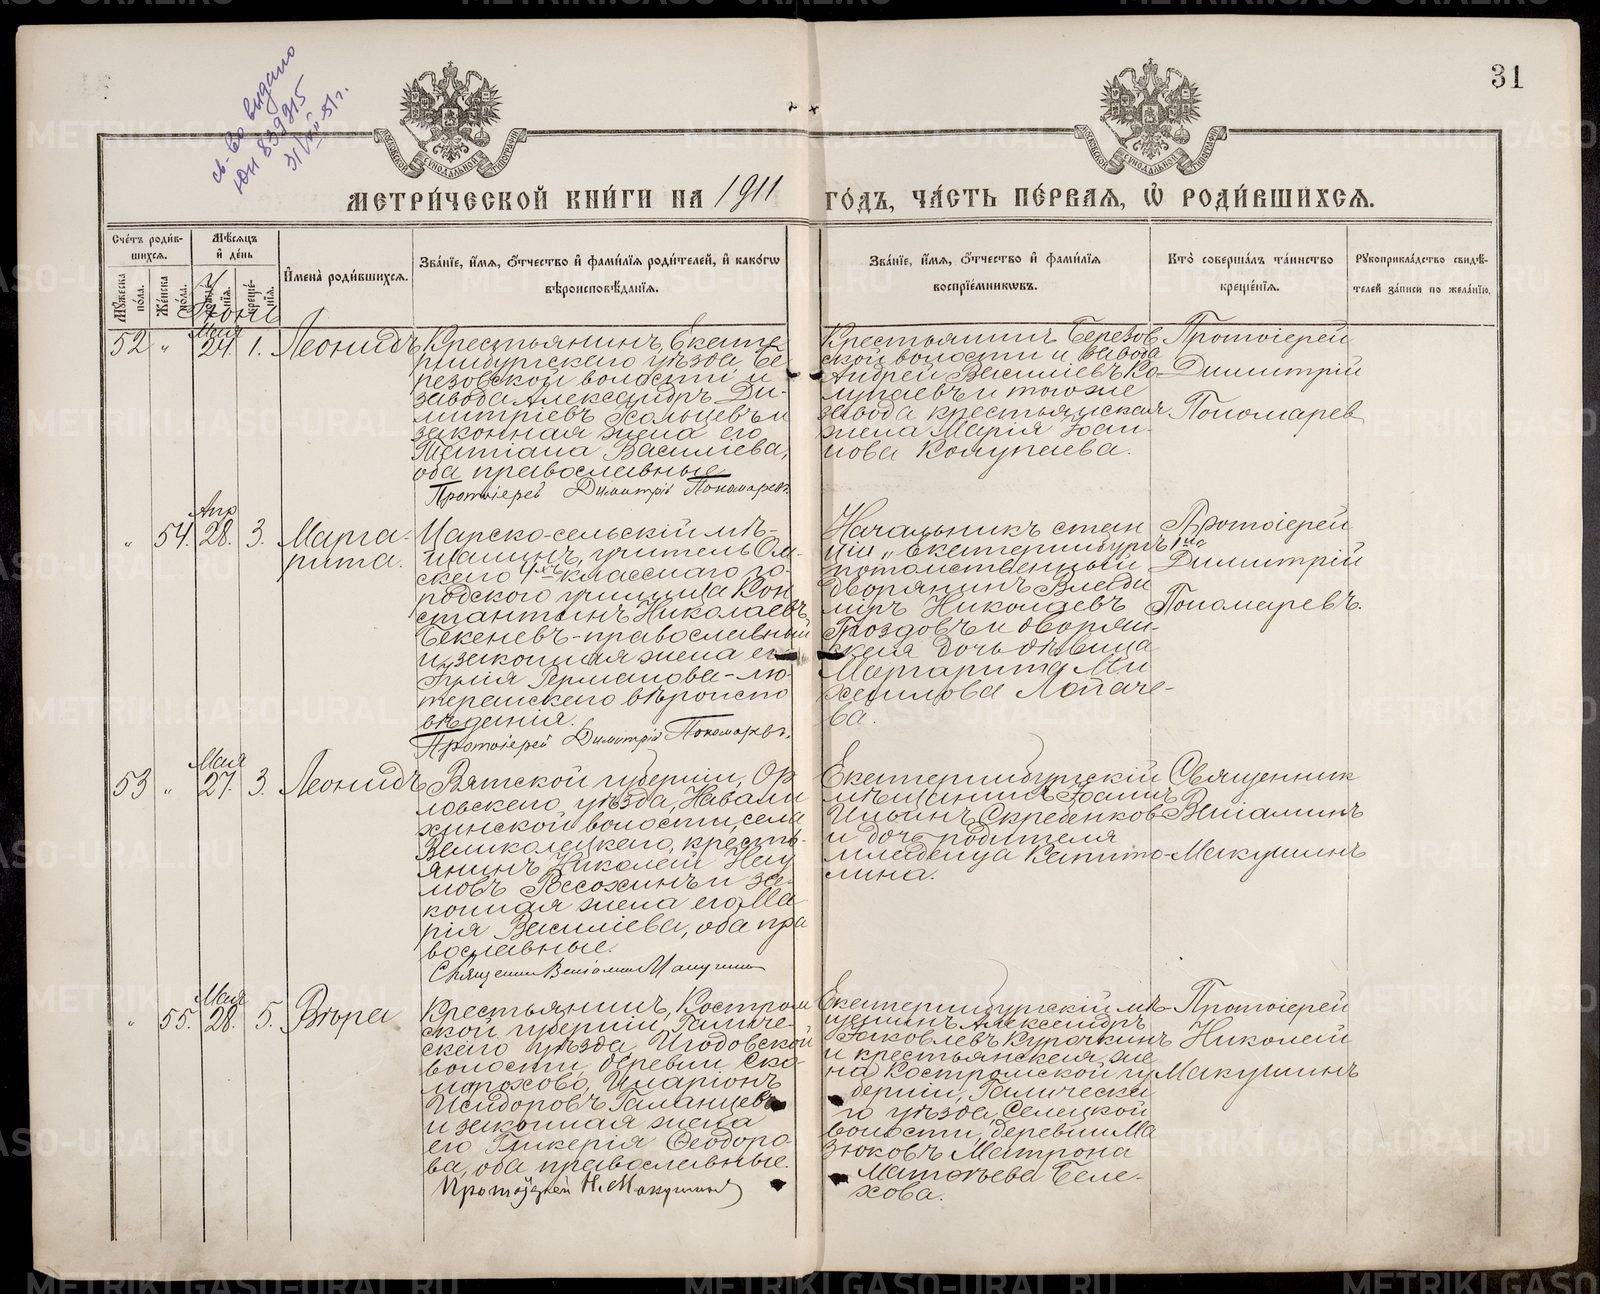 31
св-во выдано
ЮН 839915
31/XII-51 г.
МЕТРИ́ЧЕСКОЙ КНИ́ГИ НА 1911 ГО́ДЪ, ЧА́СТЬ ПЕ́РВАЯ, Ѽ РОДИ́ВШИХСЯ.
Сче́тъ роди́в-
шихся.
Мѣ́сяцъ
и҆ де́нь
Мꙋ́жеска по́ла.
Же́нска по́ла.
креще́-
нія.
И҆мена̀ роди́вшихся.
Зва́ніе, и҆́мя, ѻ҆́тчество и҆ фами́лія роди́телей, и҆ како́гѡ
вѣроисповѣ́данія.
Зва́ніе, и҆́мя, ѻ҆́тчество и҆ фами́лія
воспріе́мникѡвъ.
Кто̀ соверша́лъ та́инство
креще́нія.
Рꙋкоприкла́дство свидѣ́-
телей за́писи по жела́нію.
Июнь
52 " Мая 24. 1. Леонидъ
Крестьянинъ, Екате
ринбургскаго уѣзда Бе
резовской волости и
завода Александръ Ди-
митріевъ Хольцевъ и
законная жена его
Татіана Васильева,
оба православные
Протоіерей Димитрій Пономаревъ.
Крестьянинъ Березов
ской волости и завода
Андрей Васильевъ Ко-
лупаевъ и тогоже
завода крестьянская
жена Марія Іоан-
нова Колупаева.
Протоіерей
Димитрій
Пономарев
" 54. Апр 28. 3. Марга-
рита.
Царско-сельскій мѣ-
щанинъ, учитель Ом-
скаго 4хъ-класснаго го-
родского училища Кон
стантинъ Николаевъ
Бекеневъ-православный
и законная жена его
Юлія Германова-лю-
теранскаго вѣроиспо
вѣденія.
Протоіерей Димитрій Пономаревъ.
Начальникъ стан
ціи „Екатеринбургъ 1й"
потомственный
дворянинъ Влади
міръ Николаевъ
Гроздовъ и дворян-
ская дочь дѣвица
Маргарита Ми-
хаилова Лопаче-
ва.
Протоіерей
Димитрій
Пономаревъ.
53 " Мая 27. 3. Леонидъ
Вятской губерніи, Ор
ловскаго уѣзда, Навали
хинской волости, села
Великорецкаго, кресть-
янинъ Николай Нау
мовъ Рассохинъ и за-
конная жена его Ма
рія Васильева, оба пра
вославные.
Священникъ Веніаминъ Макушинъ
Екатеринбургскій
мѣщанинъ Іоаннъ
Ильинъ Скребенков
и дочь родителя
младенца Капито-
лина.
Священник
Веніаминъ
Макушинъ
" 55. Мая 28. 5. Вѣра
Крестьянинъ, Костром
ской губерніи, Галиче-
скаго уѣзда, Игодовской
волости, деревни Ско-
морохово, Иларіонъ
Исидоровъ Галанцевъ
и законная жена
его Гликерія Ѳеодоро-
ва, оба православные.
Протоіерей Н. Макушинъ
Екатеринбургскій мѣ-
щанинъ Александръ
Іаковлевъ Курочкинъ
и крестьянская же
на Костромской гу
берніи, Галическа
го уѣзда, Селецкой
волости, деревни Ма
зюковъ Матрона
Матѳеева Беле-
хова.
Протоіерей
Николай
Макушинъ